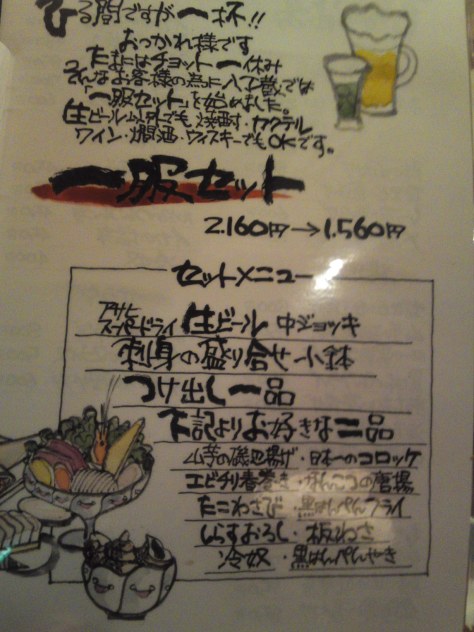 ひる間ですが一杯!!
おつかれ様です
たまにはチョット一休み
そんなお客様の為に八丁蔵では
「一服セット」を始めました。
生ビール以外でも、焼酎・カクテル
ワイン・燗酒・ウィスキーでもOKです。
一服セット
2.160円→1.560円
セットメニュー
アサヒ
スーパードライ 生ビール 中ジョッキ
刺身の盛り合せ 小鉢
つけ出し一品
下記よりお好きな二品
山芋の磯辺揚げ・日本一のコロッケ
エビチリ春巻き・なんこつの唐揚
たこわさび・黒はんぺんフライ
しらすおろし・板わさ
冷奴・黒はんぺんやき